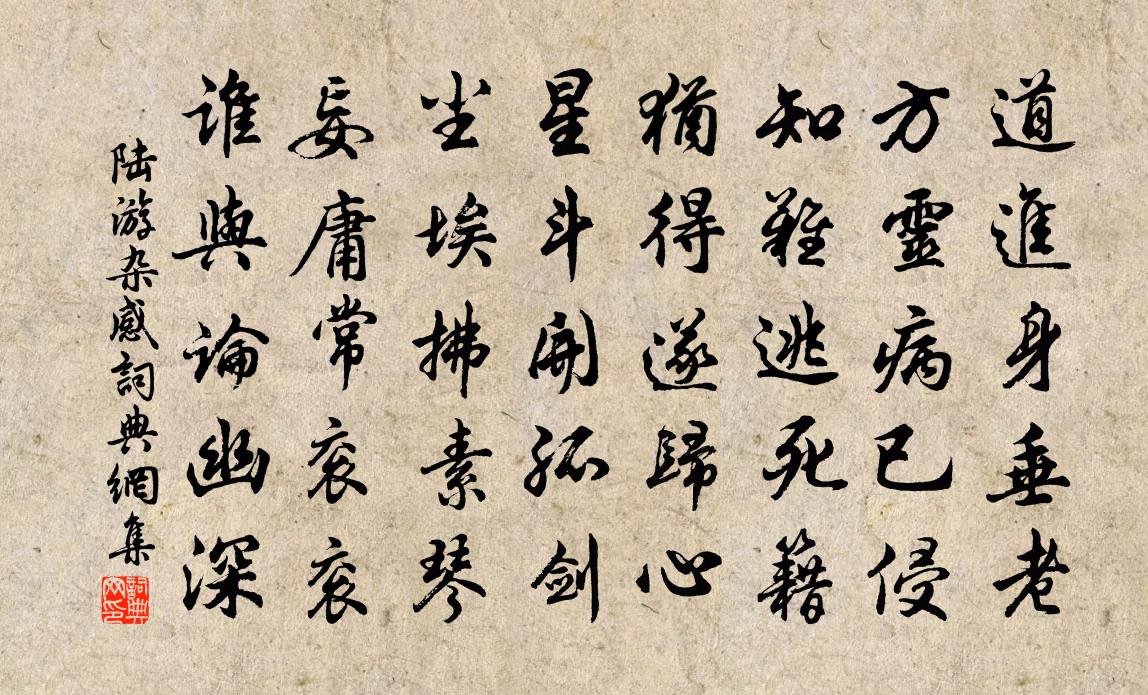 道進身垂老
方靈病已侵
知難逃死籍
猶得遂歸心
星斗開孤剑
尘埃拂素琴
妄庸常衮衮
谁與論幽深
陆游杂感詞典網集
詞典网印